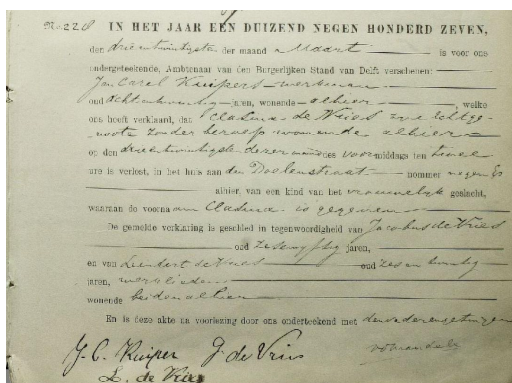 No. 228 IN HET JAAR EEN DUIZEND NEGEN HONDERD ZEVEN,
den drieentwintigste der maand Maart is voor ons
ondergeteekende, Ambtenaar van den Burgerlijken Stand van Delft verschenen:
Jan Carel Kuipers werkman
oud achtentwintig jaren, wonende alhier, welke
ons heeft verklaard, dat Clasina de Vries zijne echtge-
noote zonder beroep wonende alhier
op den drieentwintigste dezer maand des voormiddags ten twee
ure is verlost, in het huis aan den Doelenstraat nommer negen
alhier, van een kind van het vrouwelijk geslacht,
waaraan de voornaam Clasina is gegeven
De gemelde verklaring is geschied in tegenwoordigheid van Jacobus de Vries
oud zesenvijftig jaren,
en van Leendert de Vries oud zes en twintig
jaren, werklieden
wonende beiden alhier
En is deze akte na voorlezing door ons onderteekend met den vader en getuigen
voormeld
J. C. Kuiper J de Vries
L. de Vries